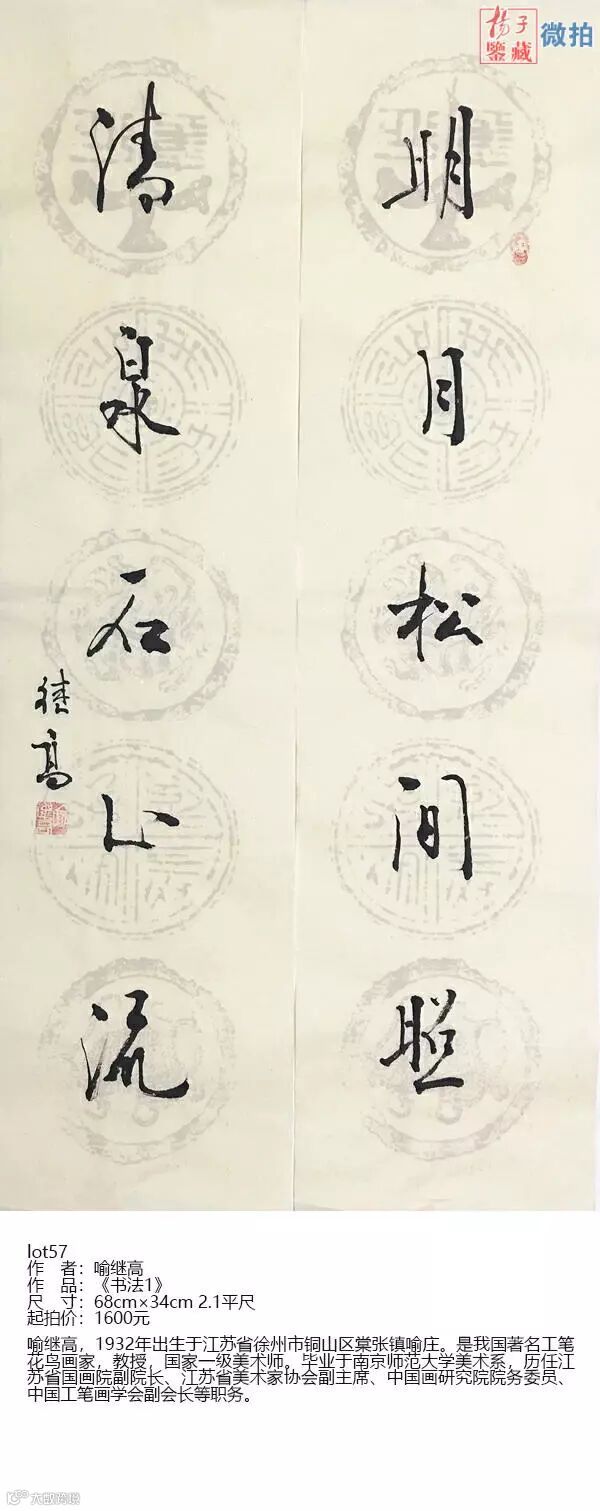 揚子
鑒藏
微拍
明月松间照
清泉石上流
继高
lot57
作 者：喻继高
作 品：《书法1》
尺 寸：68cm×34cm 2.1平尺
起拍价：1600元
喻继高，1932年出生于江苏省徐州市铜山区棠张镇喻庄。是我国著名工笔
花鸟画家，教授，国家一级美术师。毕业于南京师范大学美术系，历任江
苏省国画院副院长、江苏省美术家协会副主席、中国画研究院院务委员、
中国工笔画学会副会长等职务。
大数跨境